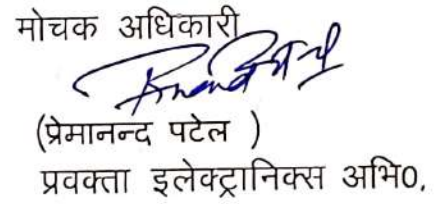 मोचक अधिकारी
(प्रेमानन्द पटेल )
प्रवक्ता इलेक्ट्रानिक्स अभि0,